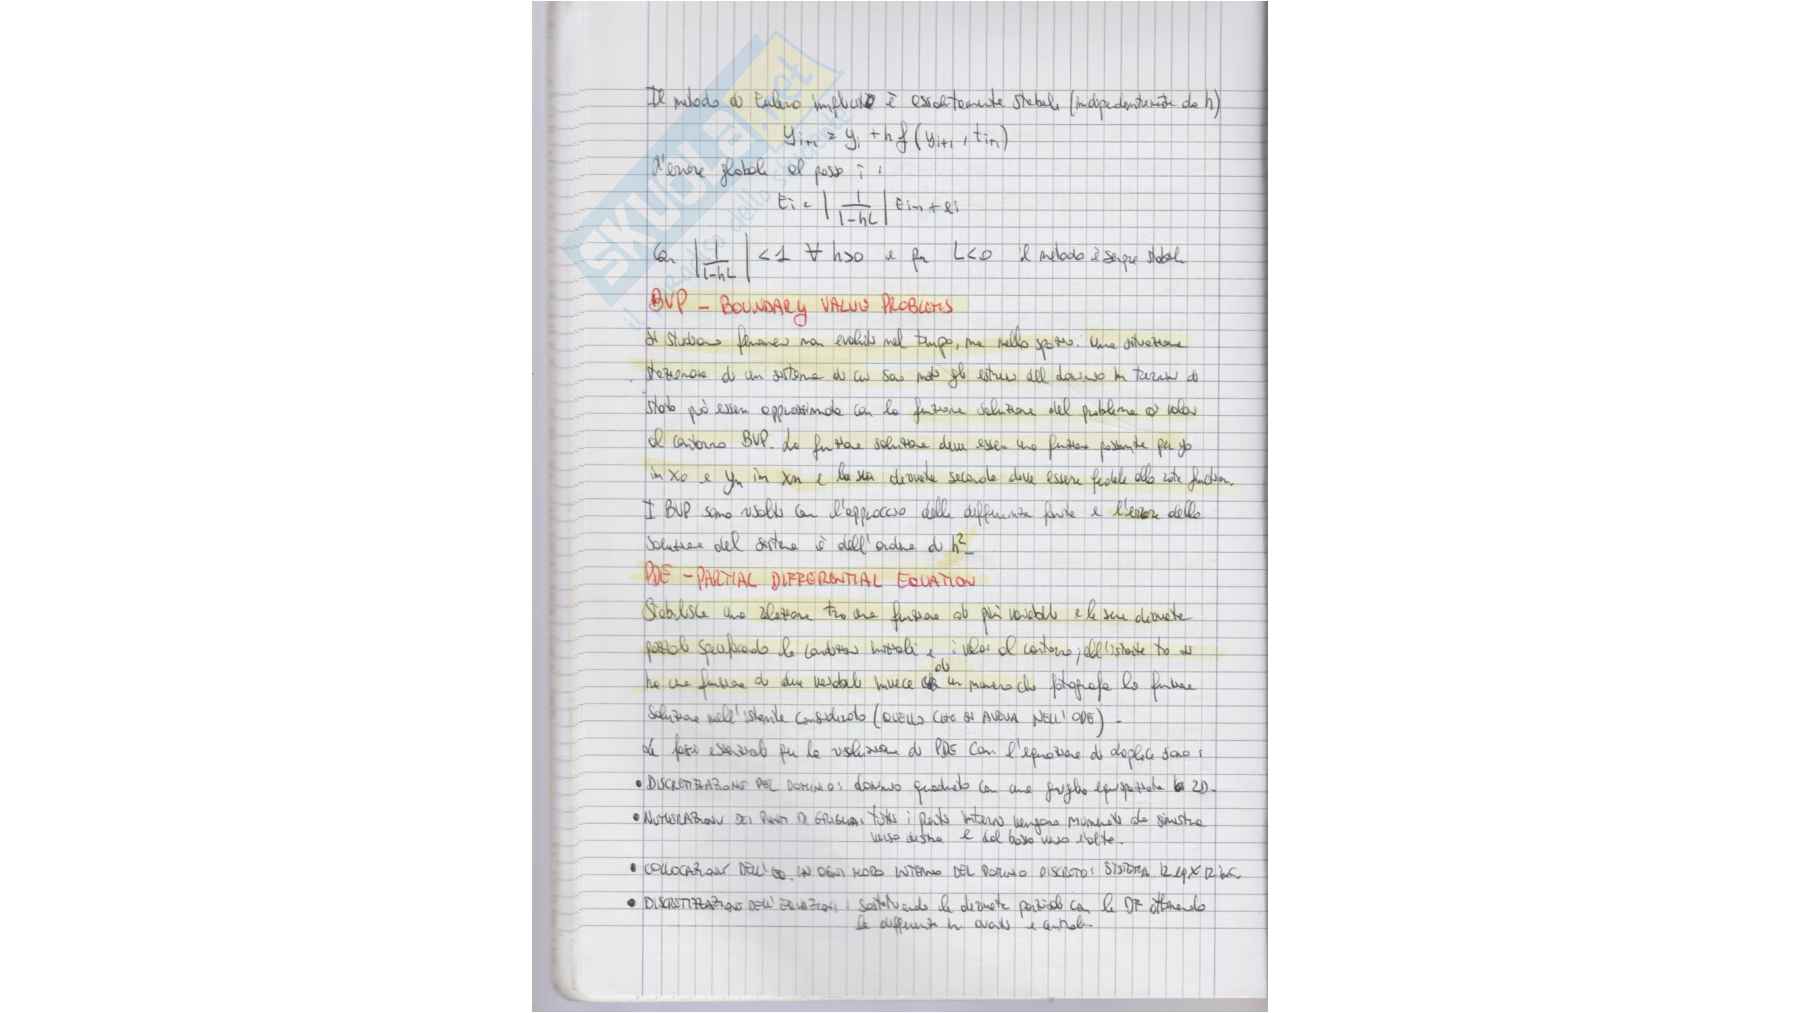 Il metodo di Eulero implicito è assolutamente stabile (indipendentemente da h)
yi+1 = yi + h f (yi+1, ti+1)
L'errore globale al passo i :
Ei = | 1/(1-hL) | Ei-1 + ei
Con | 1/(1-hL) | < 1 ∀ h>0 e per L<0 il metodo è sempre stabile
BVP - BOUNDARY VALUE PROBLEMS
Si studiano fenomeni non evoluti nel tempo, ma nello spazio. Una situazione
stazionaria di un sistema di cui sono noti gli estremi del dominio in termini di
stato può essere approssimata con la funzione soluzione del problema ai valori
al contorno BVP. La funzione soluzione deve essere una funzione passante per y0
in x0 e yn in xn e la sua derivata seconda deve essere fedele alla rate function.
I BVP sono risolti con l'approccio delle differenze finite e l'errore della
soluzione del sistema è dell'ordine di h²
PDE - PARTIAL DIFFERENTIAL EQUATION
Stabilisce una relazione tra una funzione di più variabili e le sue derivate
parziali specificando le condizioni iniziali e i valori al contorno, dall'istante t0 si
ha una funzione di due variabili invece di un numero che fotografa la funzione
soluzione nell'istante considerato (QUELLO CHE SI AVEVA NELL'ODE) -
Le fasi essenziali per la risoluzione di PDE con l'equazione di Laplace sono :
• DISCRETIZZAZIONE DEL DOMINIO: dominio quadrato con una griglia equispaziata 2D.
• NUMERAZIONE DEI PUNTI DI GRIGLIA: tutti i punti interni vengono numerati da sinistra
verso destra e dal basso verso l'alto.
• COLLOCAZIONE DELL'EQ. IN OGNI NODO INTERNO DEL DOMINIO DISCRETO: SISTEMA 12 eq x 12 inc.
• DISCRETIZZAZIONE DELL'EQUAZIONE: sostituendo le derivate parziali con le DF ottenendo
le differenze in avanti e centrali.
SKUOLA.net